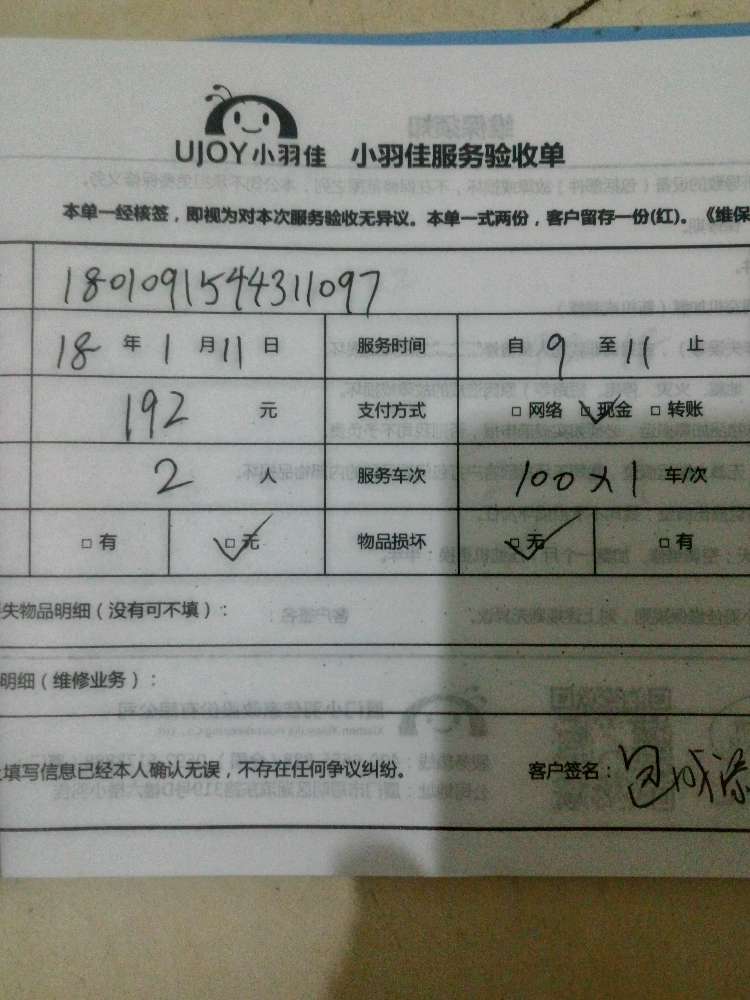 UJOY小羽佳 小羽佳服务验收单
本单一经核签，即视为对本次服务验收无异议。本单一式两份，客户留存一份(红)。《维保
1801091544311097
18 年 1 月 11 日 服务时间 自 9 至 11 止
192 元 支付方式 □ 网络 □ 现金 □ 转账
2 人 服务车次 100×1 车/次
□ 有 □ 无 物品损坏 □ 无 □ 有
失物品明细（没有可不填）：
明细（维修业务）：
填写信息已经本人确认无误，不存在任何争议纠纷。 客户签名：包成